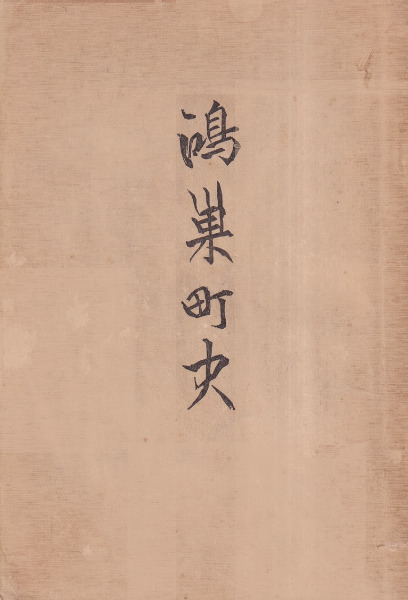 鴻巣町史